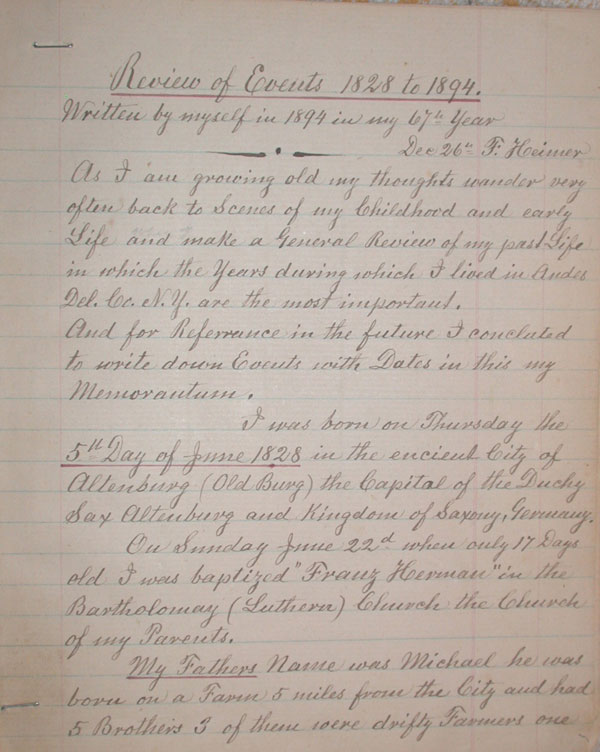 Review of Events 1828 to 1894.
Written by myself in 1894 in my 67th Year
Dec 26th F. Heimer
As I am growing old my thoughts wander very
often back to Scenes of my Childhood and early
Life and make a General Review of my past Life
in which the Years during which I lived in Andes
Del. Co. N.Y. are the most important.
And for Referrance in the future I concluted
to write down Events with Dates in this my
Memorantum.
I was born on Thursday the
5th Day of June 1828 in the encient City of
Altenburg (Old Burg) the Capital of the Duchy
Sax Altenburg and Kingdom of Saxony, Germany.
On Sunday June 22d when only 17 Days
old I was baptized "Franz Herman" in the
Bartholomay (Luthern) Church the Church
of my Parents.
My Fathers Name was Michael he was
born on a Farm 5 miles from the City and had
5 Brothers 3 of them were drifty Farmers one